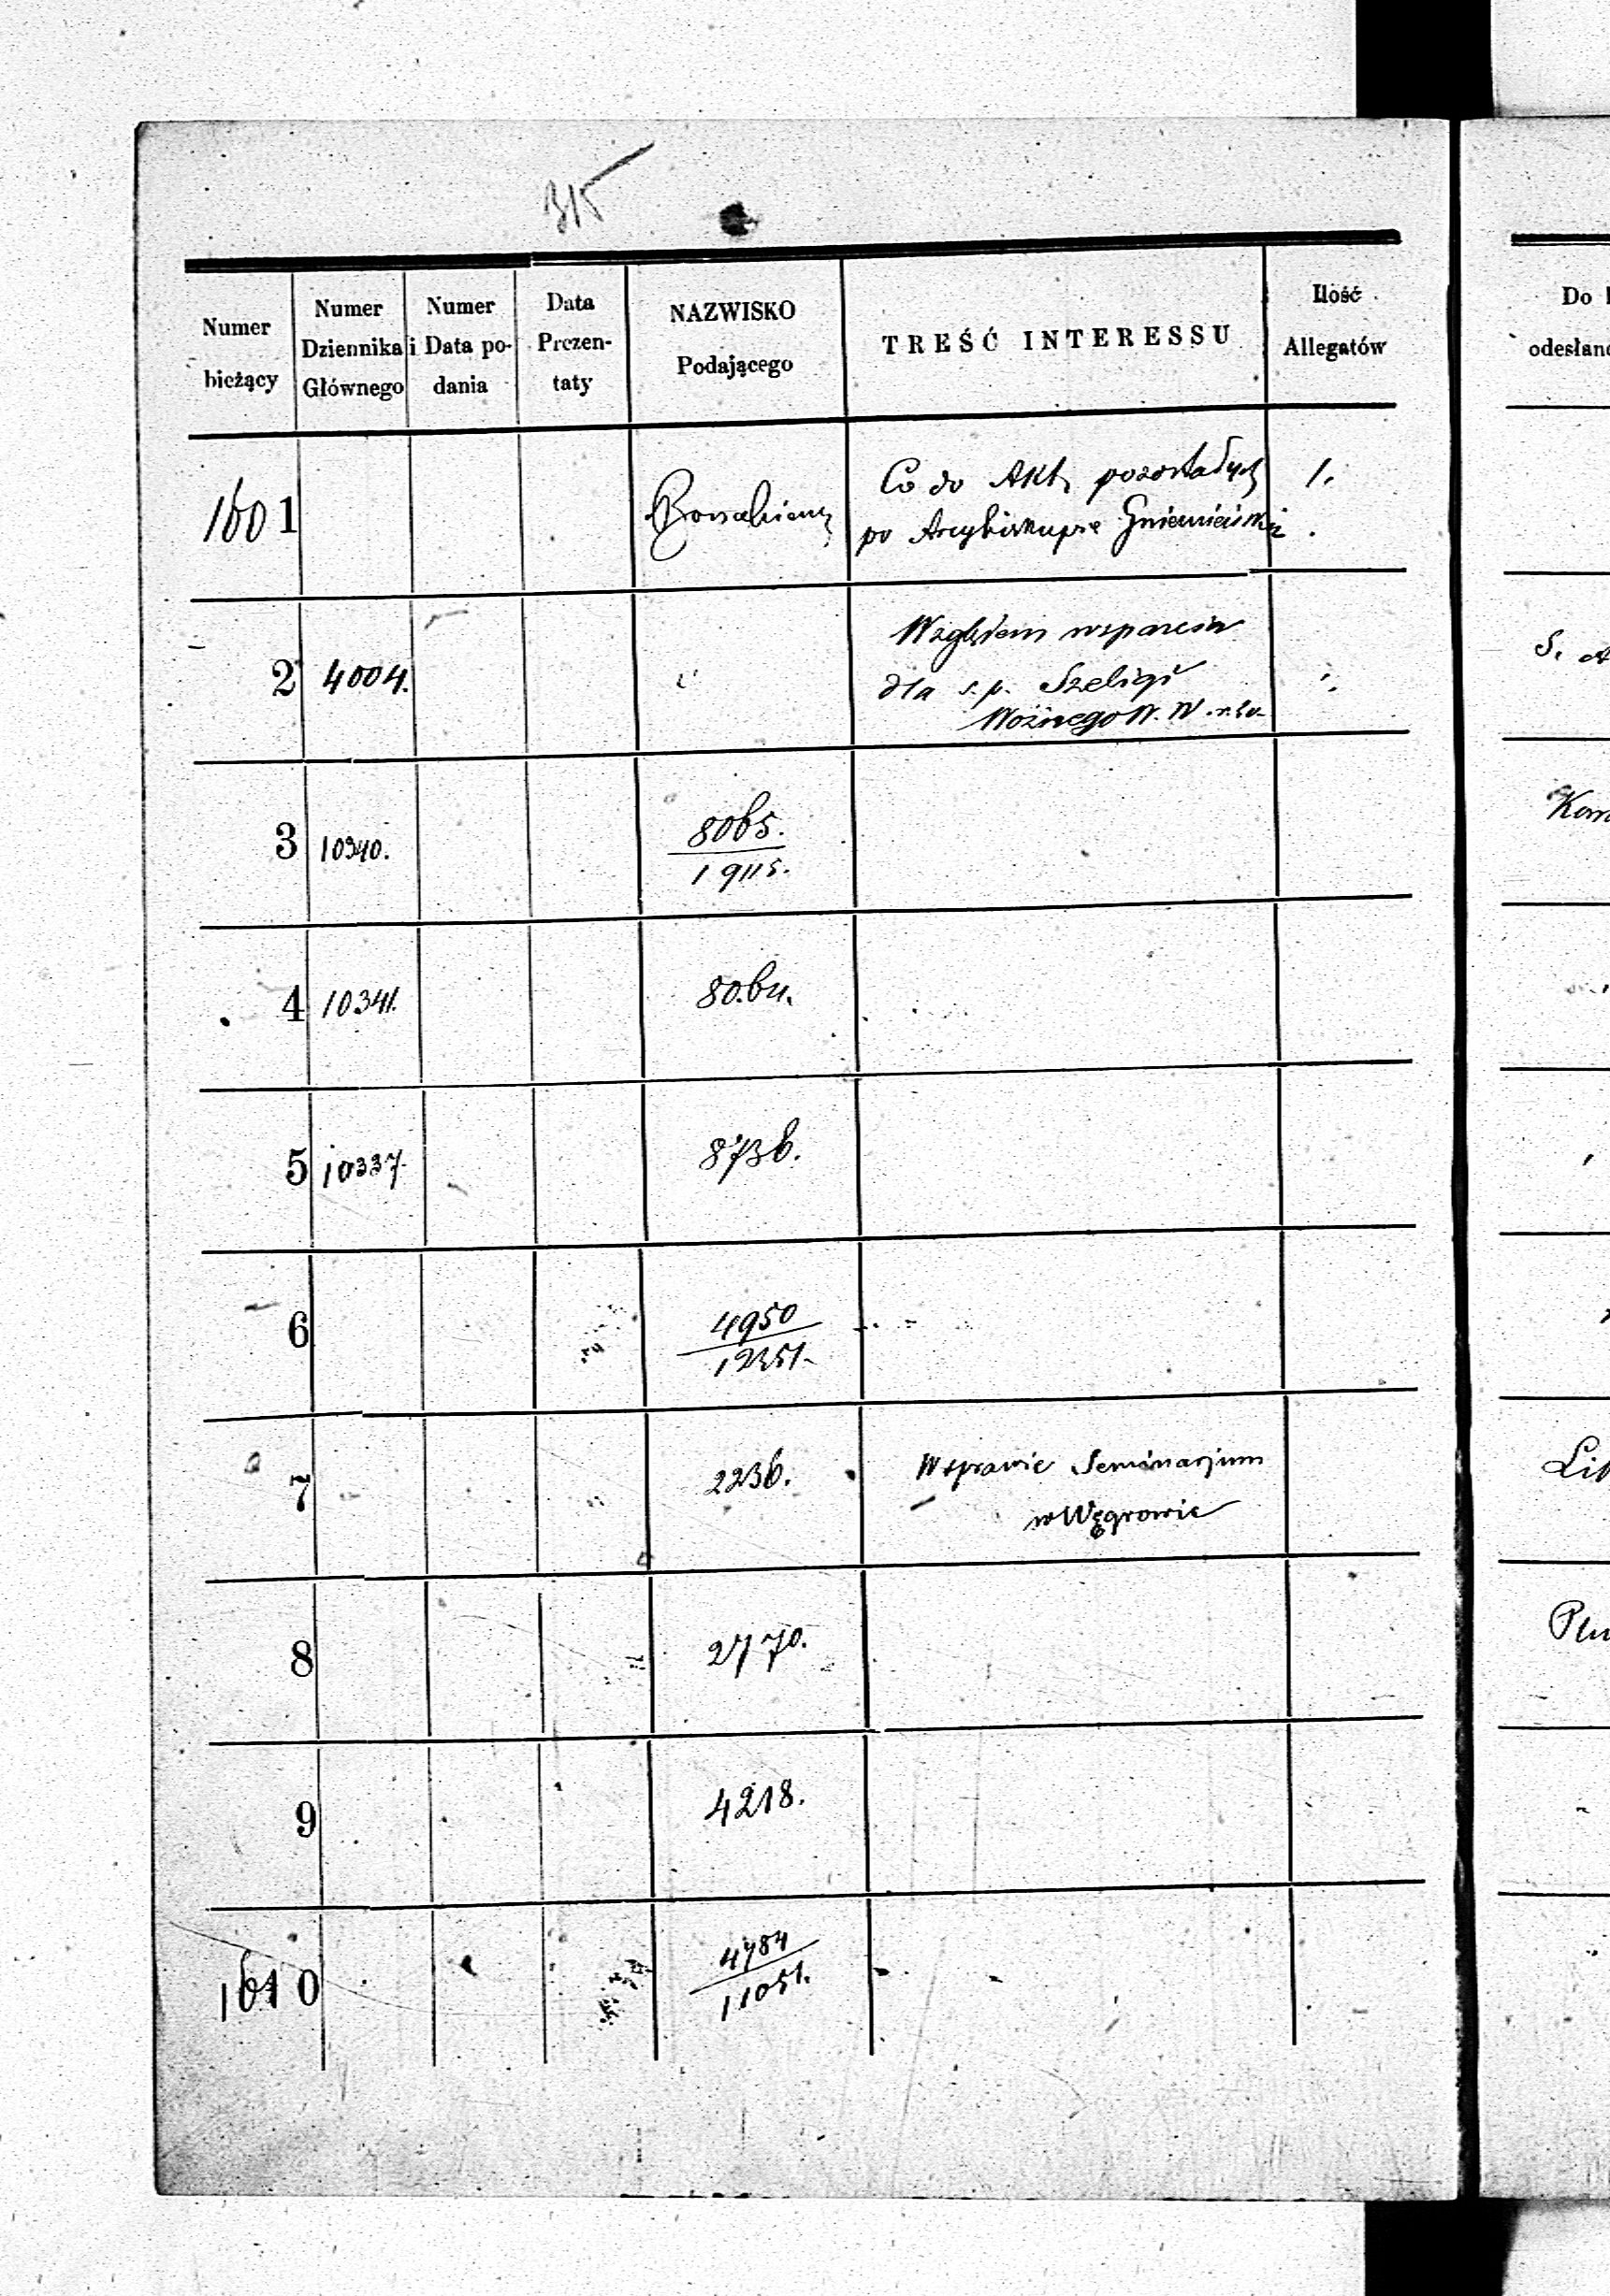 315
Numer bieżący
Numer Dziennika Głównego
Numer i Data podania
Data Prezentaty
NAZWISKO Podającego
TREŚĆ INTERESSU
Ilość Allegatów
Do
1601
Co do Akt, pozostałych
1.
po Arcybiskupie
2
4004.
Względem wsparcia
dla s. p. Szeligi
Woźnego W. W.
S.
3
10340.
8065.
19115.
Kom
4
10341.
8064.
5
10337.
8736.
6
4950
12351.
7
2236.
W sprawie Seminarjum
w Węgrowie
8
2770.
9
4218.
1610
4784
11051.